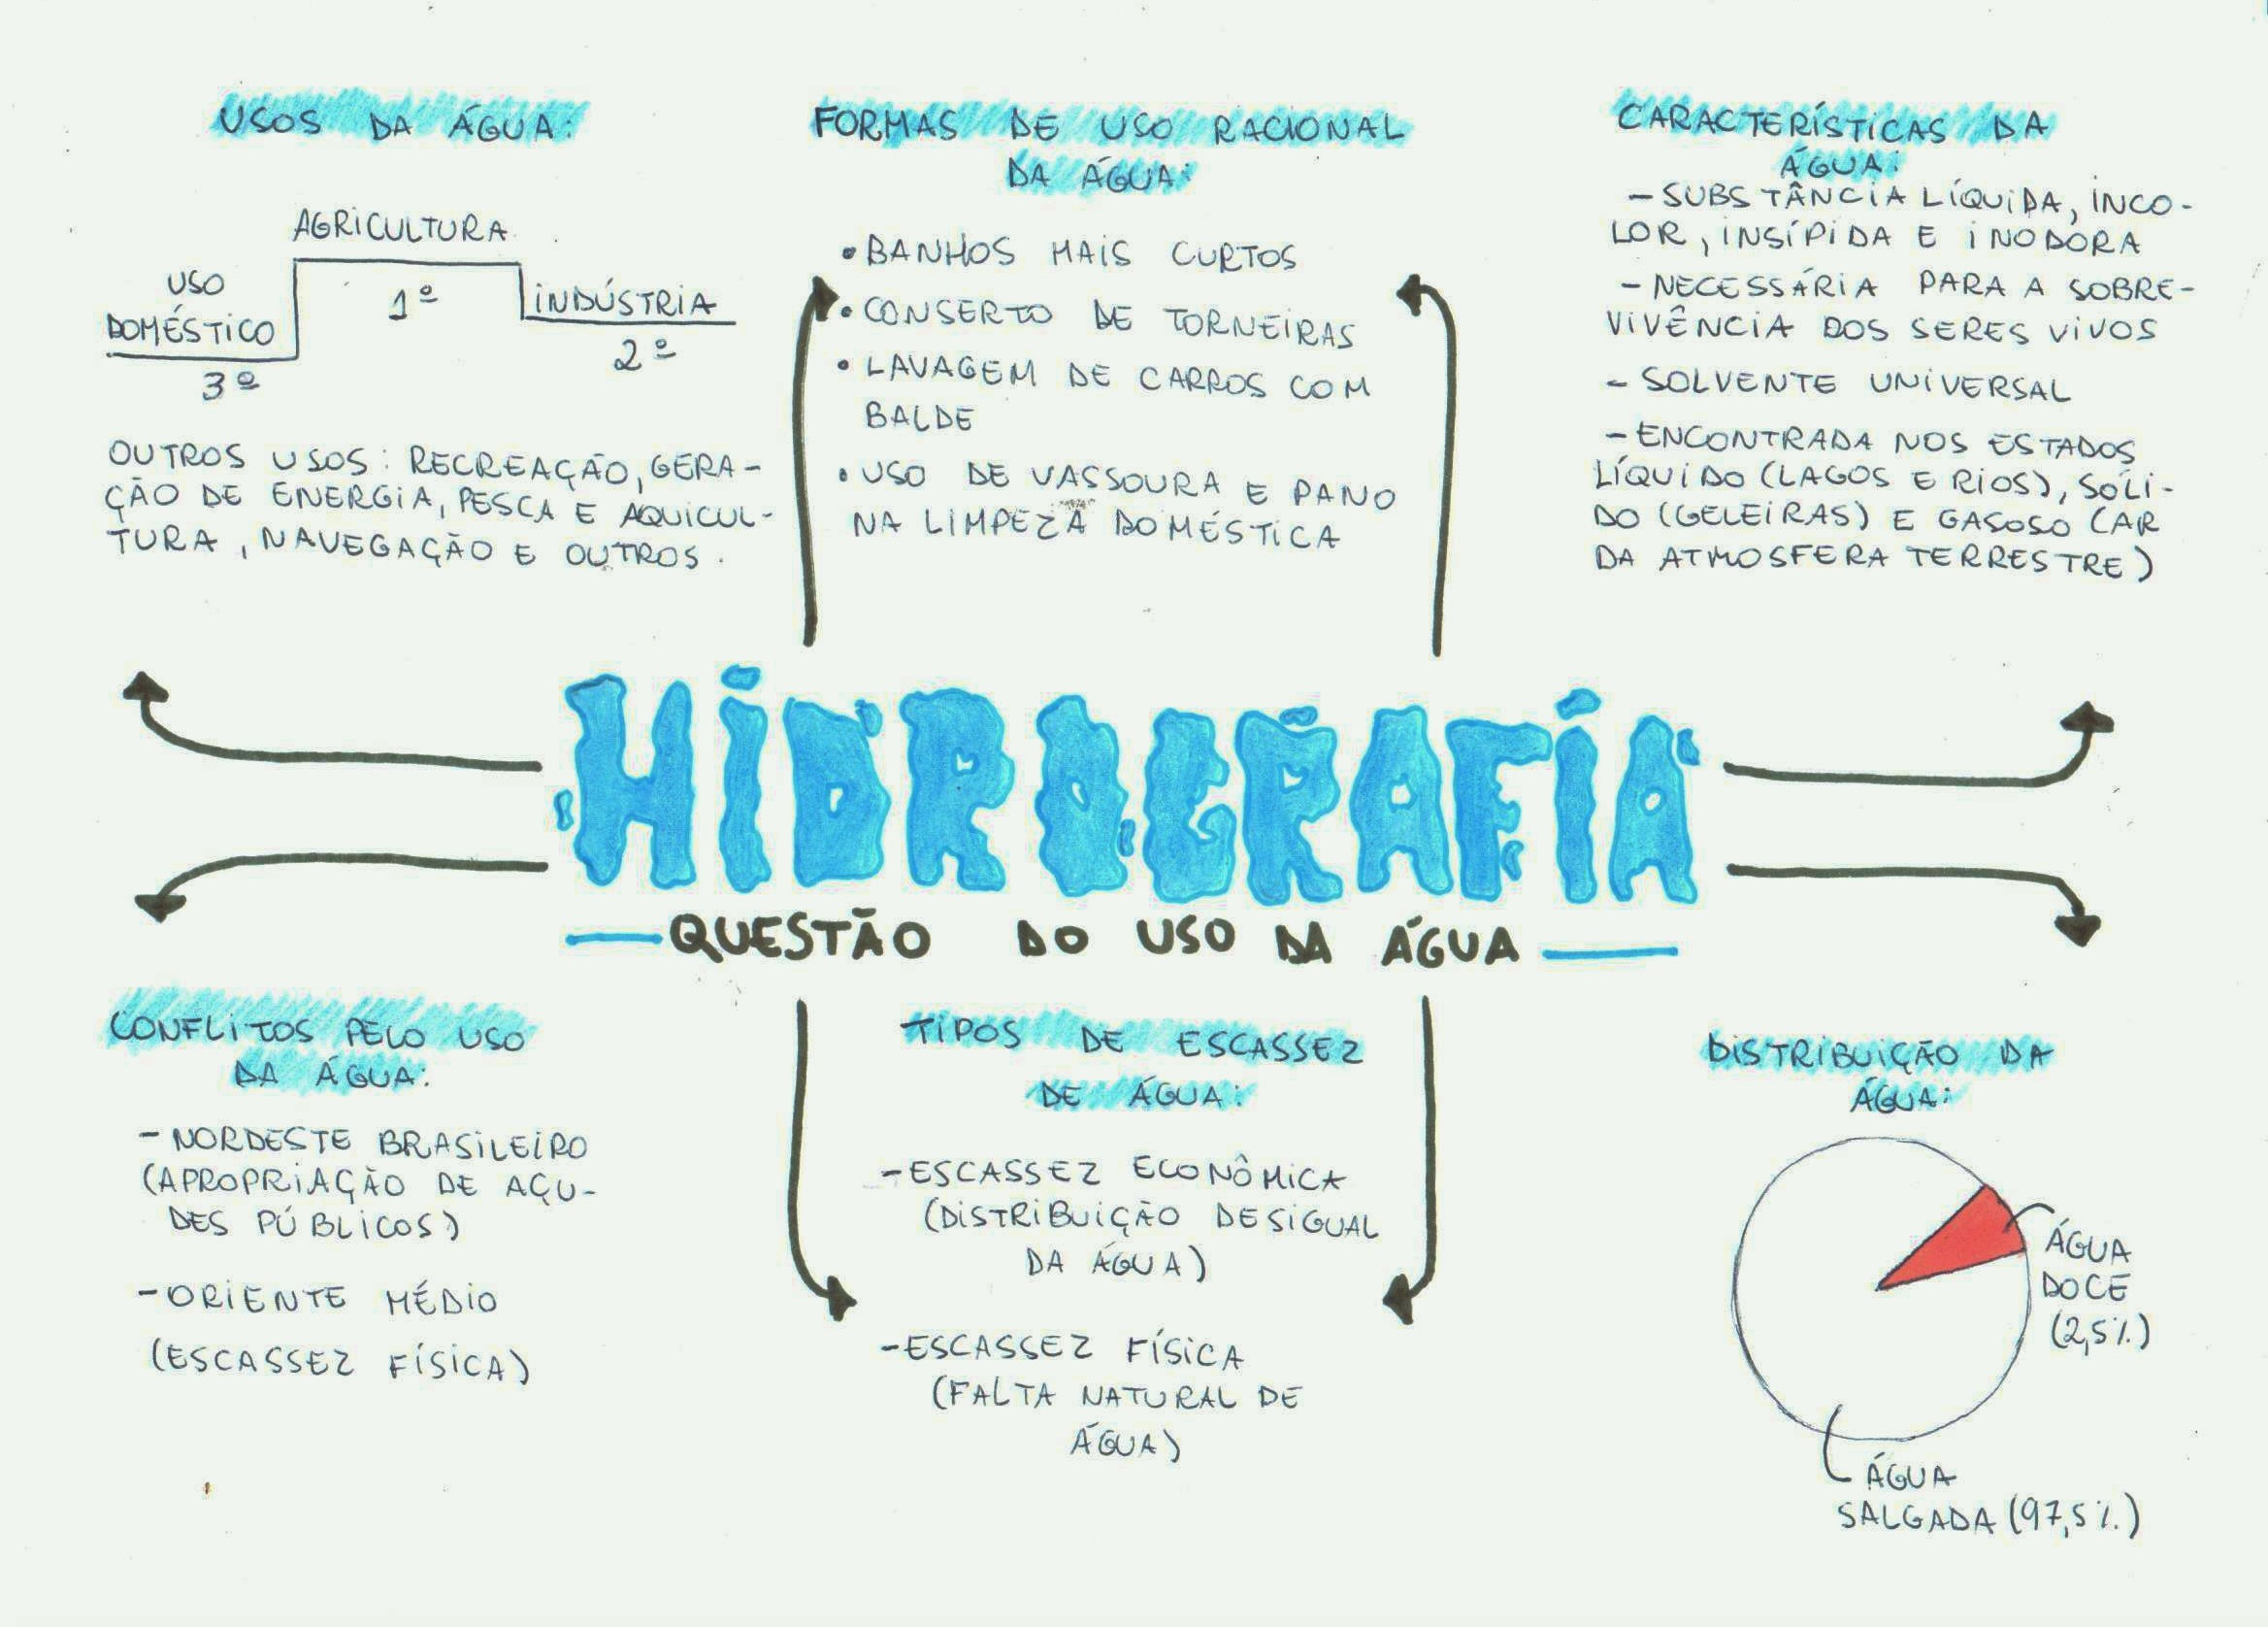 USOS DA ÁGUA:
AGRICULTURA
USO
DOMÉSTICO
1º
INDÚSTRIA
2º
3º
OUTROS USOS: RECREAÇÃO, GERA-
ÇÃO DE ENERGIA, PESCA E AQUICUL-
TURA, NAVEGAÇÃO E OUTROS.
FORMAS DE USO RACIONAL
DA ÁGUA:
• BANHOS MAIS CURTOS
• CONSERTO DE TORNEIRAS
• LAVAGEM DE CARROS COM
BALDE
• USO DE VASSOURA E PANO
NA LIMPEZA DOMÉSTICA
CARACTERÍSTICAS DA
ÁGUA:
- SUBSTÂNCIA LÍQUIDA, INCO-
LOR, INSÍPIDA E INODORA
- NECESSÁRIA PARA A SOBRE-
VIVÊNCIA DOS SERES VIVOS
- SOLVENTE UNIVERSAL
- ENCONTRADA NOS ESTADOS
LÍQUIDO (LAGOS E RIOS), SÓLI-
DO (GELEIRAS) E GASOSO (AR
DA ATMOSFERA TERRESTRE)
HIDROGRAFIA
QUESTÃO DO USO DA ÁGUA
CONFLITOS PELO USO
DA ÁGUA:
- NORDESTE BRASILEIRO
(APROPRIAÇÃO DE AÇU-
DES PÚBLICOS)
- ORIENTE MÉDIO
(ESCASSEZ FÍSICA)
TIPOS DE ESCASSEZ
DE ÁGUA:
- ESCASSEZ ECONÔMICA
(DISTRIBUIÇÃO DESIGUAL
DA ÁGUA)
- ESCASSEZ FÍSICA
(FALTA NATURAL DE
ÁGUA)
DISTRIBUIÇÃO DA
ÁGUA:
ÁGUA
DOCE
(2,5%)
ÁGUA
SALGADA (97,5%)